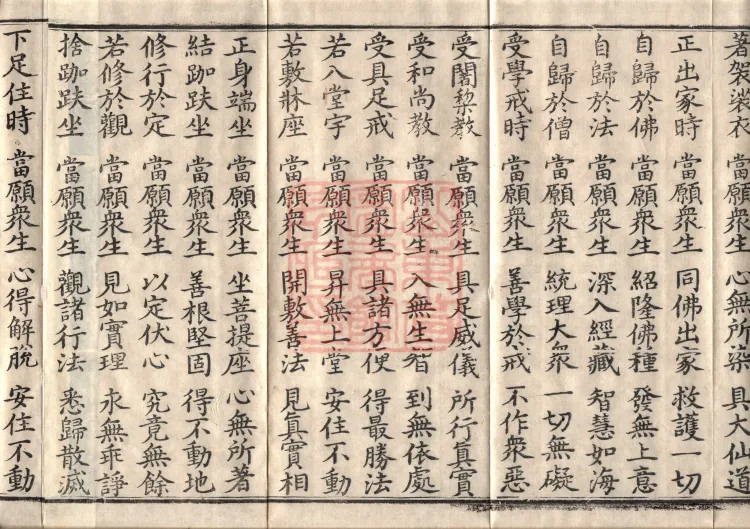 著袈裟衣 當願衆生 心無所染 具大仙道
正出家時 當願衆生 同佛出家 救護一切
自歸於佛 當願衆生 紹隆佛種 發無上意
自歸於法 當願衆生 深入經藏 智慧如海
自歸於僧 當願衆生 統理大衆 一切無礙
受學戒時 當願衆生 善學於戒 不作衆惡
受闍黎教 當願衆生 具足威儀 所行真實
受和尚教 當願衆生 入無生智 到無依處
受具足戒 當願衆生 具諸方便 得最勝法
若入堂宇 當願衆生 昇無上堂 安住不動
若敷牀座 當願衆生 開敷善法 見真實相
正身端坐 當願衆生 坐菩提座 心無所著
結跏趺坐 當願衆生 善根堅固 得不動地
修行於定 當願衆生 以定伏心 究竟無餘
若修於觀 當願衆生 見如實理 永無乖諍
捨跏趺坐 當願衆生 觀諸行法 悉歸散滅
下足住時 當願衆生 心得解脫 安住不動